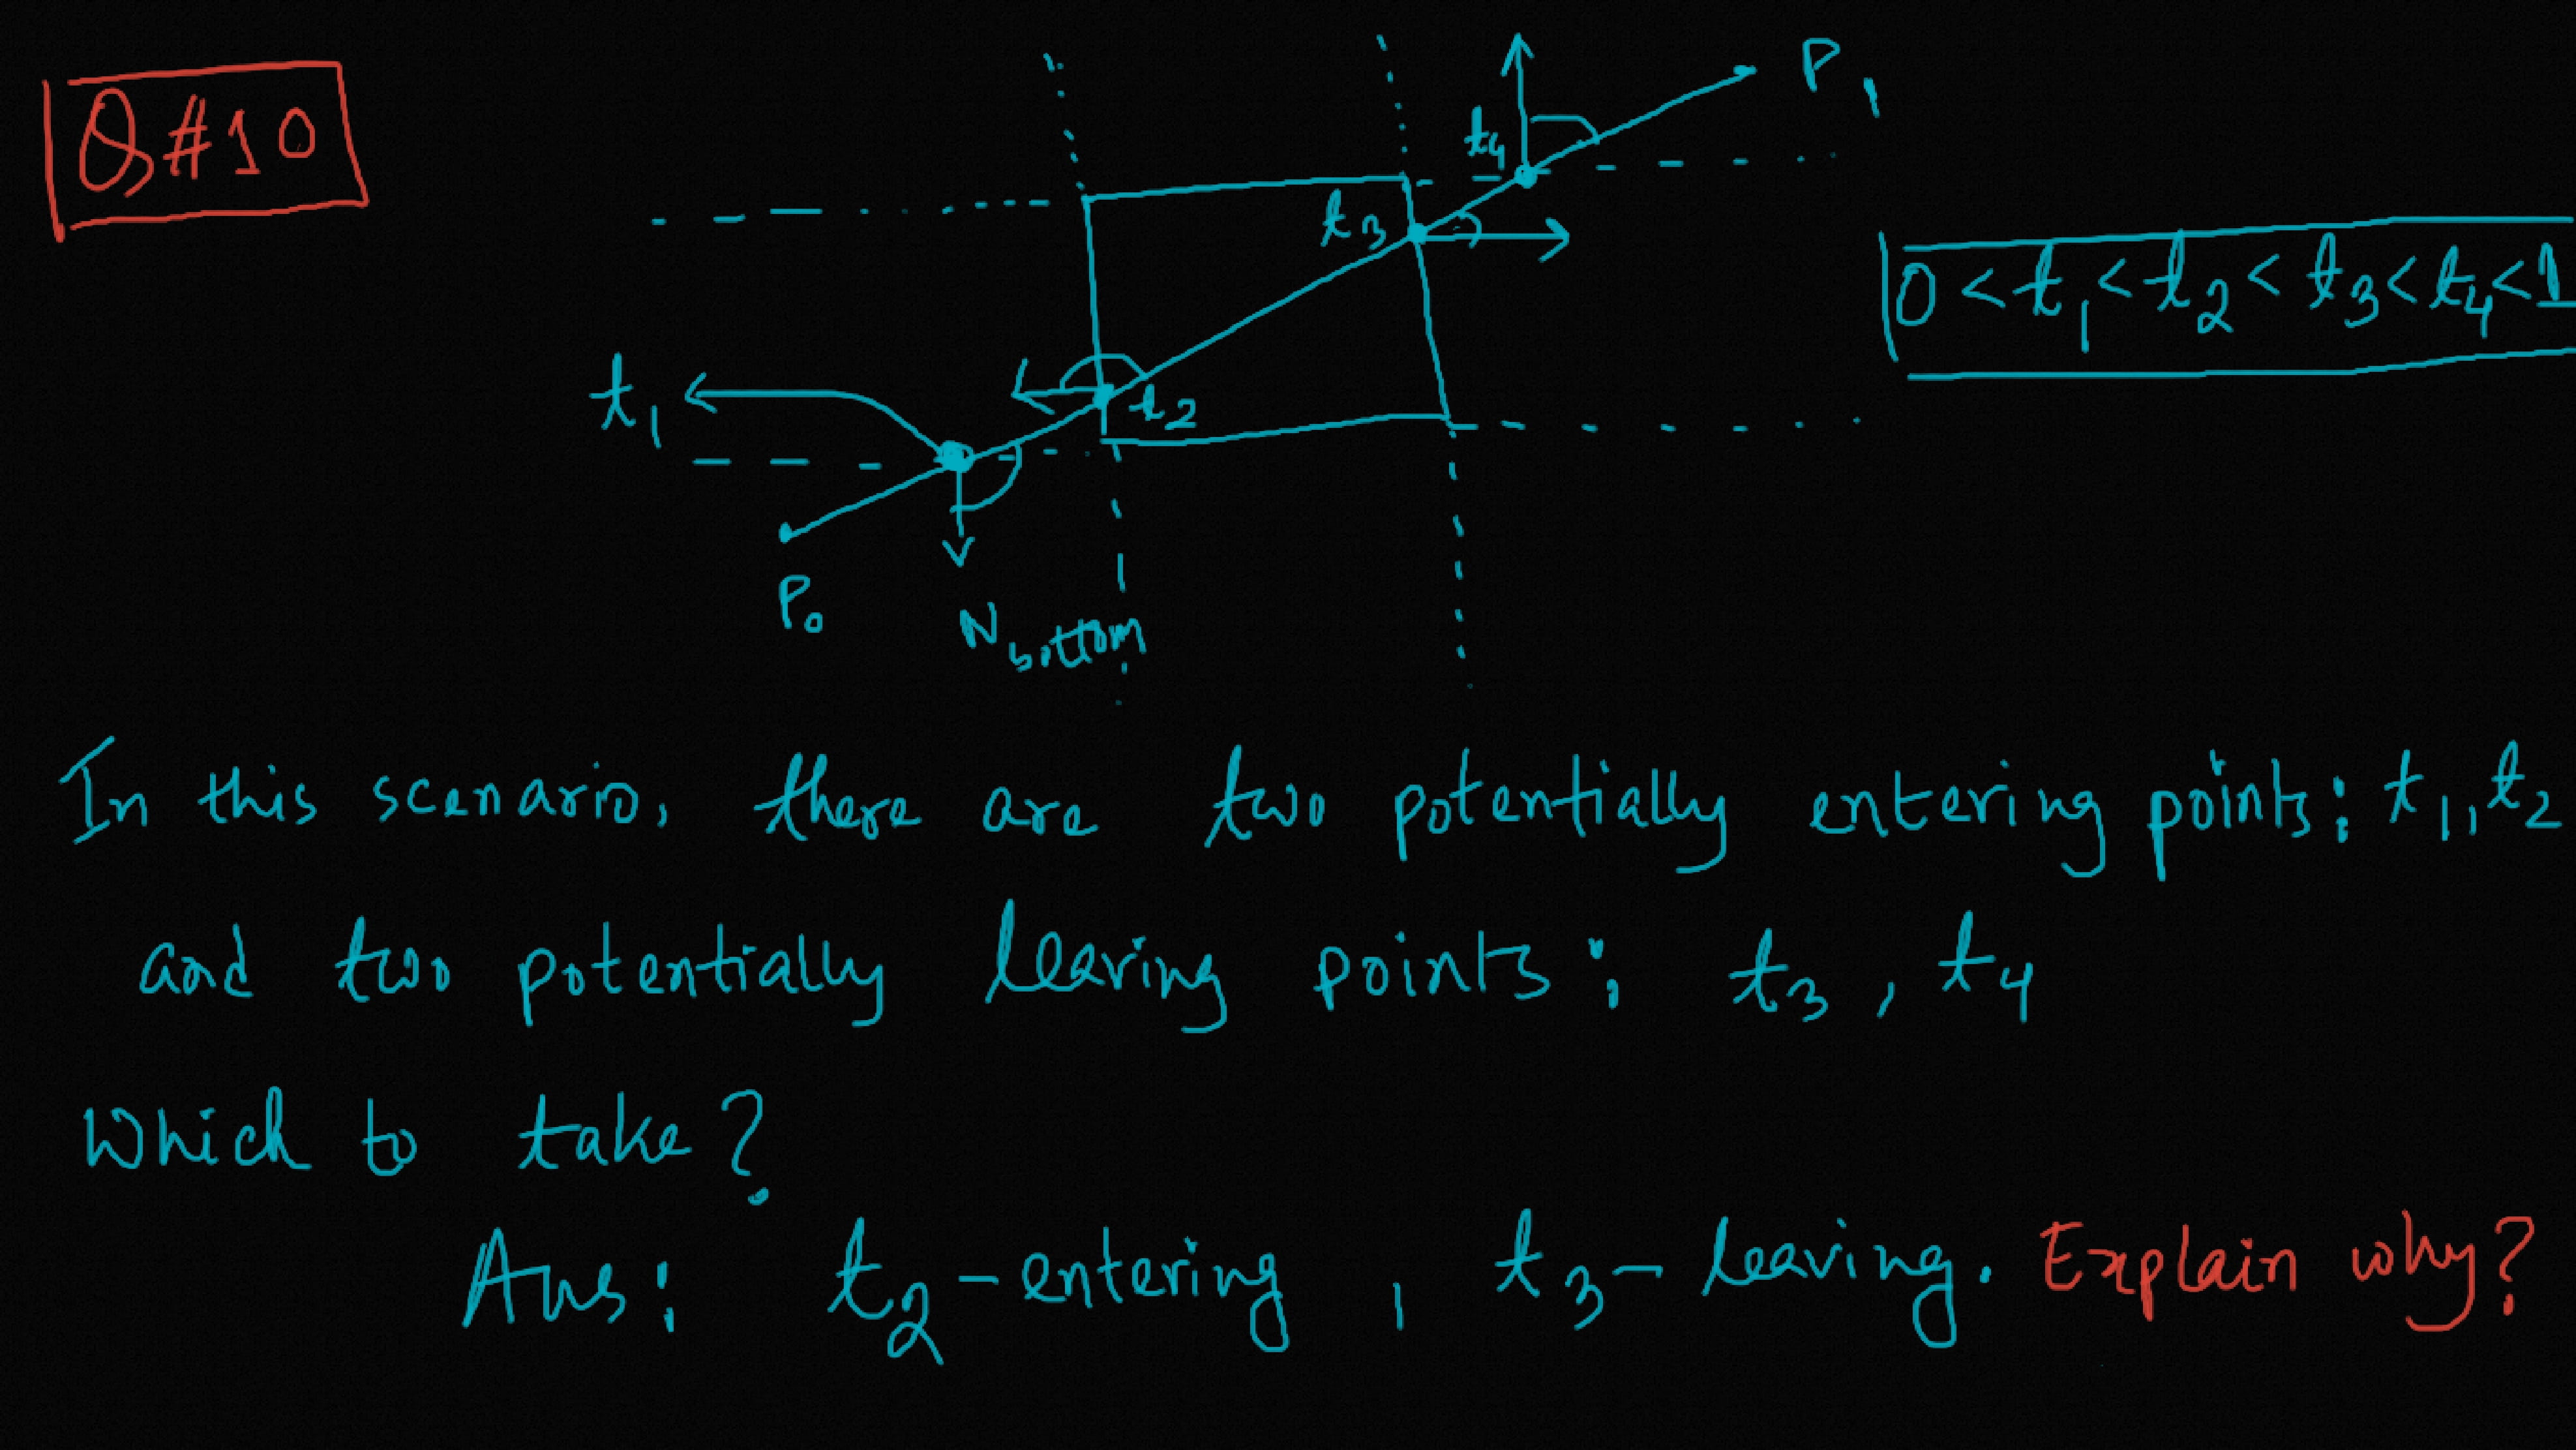 Q#10
P₁
t₄
t₃
0 < t₁ < t₂ < t₃ < t₄ < 1
t₁
t₂
P₀
N bottom
In this scenario, there are two potentially entering points: t₁, t₂
and two potentially leaving points: t₃, t₄
Which to take?
Ans: t₂ - entering, t₃ - leaving. Explain why?